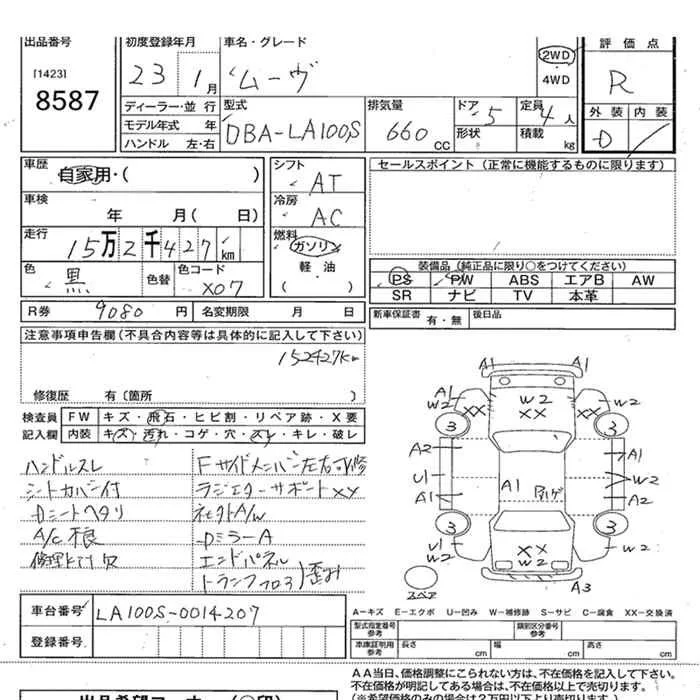 出品番号 初度登録年月 車名・グレード 評価点
[1423]
8587
23 1月 ムーヴ 2WD R
4WD
外装 内装
ディーラー・並行 型式 排気量 ドア 定員
モデル年式 年 DBA-LA100S 660 CC 5 4人 D
ハンドル 左・右 形状 積載 kg
車歴 シフト セールスポイント (正常に機能するものに限ります)
自家用・( ) AT
車検 冷房
年 月( 日) AC
走行 燃料
15万2千427km ガソリン
色 色替 色コード 軽油 装備品 (純正品に限り○をつけてください)
黒 X07 ( ) PS PW ABS エアB AW
SR ナビ TV 本革
R券 9080円 名変期限 月 日 新車保証書 有・無 後日品
注意事項申告欄(不具合内容等は具体的に記入して下さい)
152427km
修復歴 有(箇所 )
検査員 FW キズ・飛石・ヒビ割・リペア跡・X要
記入欄 内装 キズ・汚れ・コゲ・穴・スレ・キレ・破レ
ハンドルスレ Fサイドメンバー左右可修
シートカバー付 ラジエターサポートXX
Dシートヘタリ
A/C不良 DミラーA
エンドパネル
トランクフロア 歪み
A1 A1
A1 W2 XX W2 XX XX A1 W2
3 3
A2 A1
U1 A1 W2
A1 A2
3 3
U1 W2 XX W2 W2
スペア A3
A-キズ E-エクボ U-凹み W-補修跡 S-サビ C-腐食 XX-交換済
車台番号 LA100S-0014207
型式指定番号 参考 類別区分番号 参考
登録番号 車庫証明用 参考 長さ cm 幅 cm 高さ cm
AA当日、価格調整にこられない方は、不在価格を記入して下さい。
不在価格が明記してある場合は、不在価格以上で売切ります。